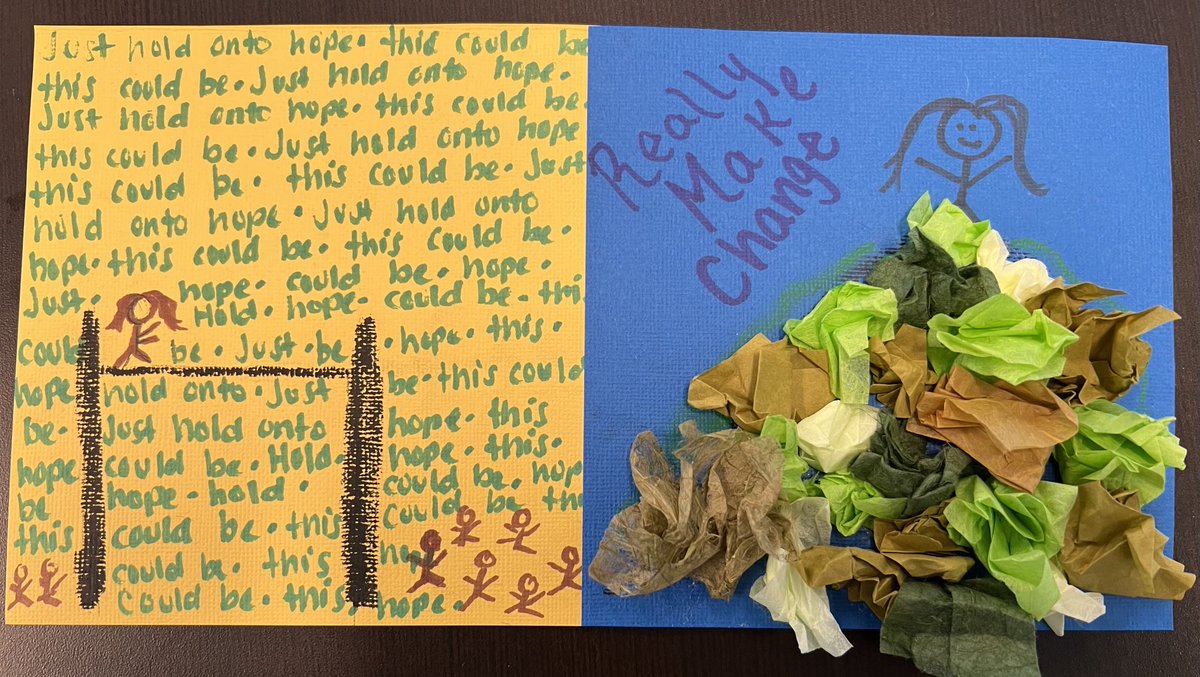 Just hold onto hope. this could be
this could be. Just hold onto hope.
Just hold onto hope. this could be.
this could be. Just hold onto hope
this could be. this could be. Just
hold onto hope. Just hold onto
hope. this could be. this could be.
Just. hope. could be. hope.
Hold. hope. could be. thi
could be. Just. be. hope. this.
hope hold onto. Just be. this could
be. Just hold onto hope. this
hope could be. Hold. hope. this.
be hope. hold. could be. hop
this could be. this could be. th
could be. this hop
could be. this hope.
Really
Make
Change